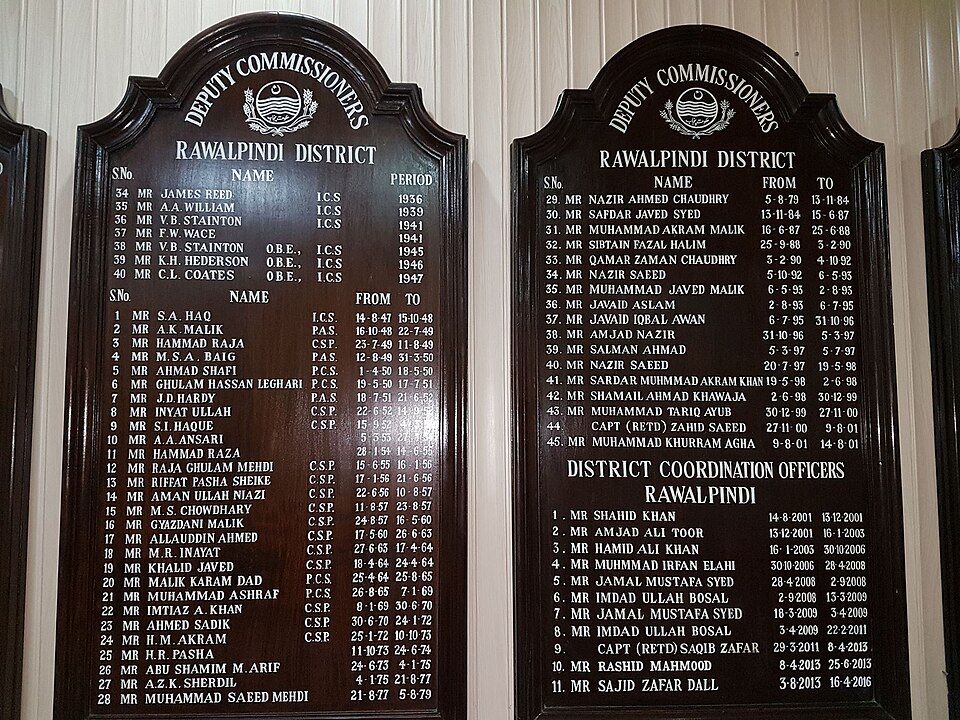 DEPUTY COMMISSIONERS
RAWALPINDI DISTRICT
S.No. NAME PERIOD
34 MR JAMES REED I.C.S 1936
35 MR A.A. WILLIAM I.C.S 1939
36 MR V.B. STAINTON I.C.S 1941
37 MR F.W. WACE 1941
38 MR V.B. STAINTON O.B.E., I.C.S 1945
39 MR K.H. HEDERSON O.B.E., I.C.S 1946
40 MR C.L. COATES O.B.E., I.C.S 1947
S.No. NAME FROM TO
1 MR S.A. HAQ I.C.S. 14-8-47 15-10-48
2 MR A.K. MALIK P.A.S. 16-10-48 22-7-49
3 MR HAMMAD RAJA C.S.P. 23-7-49 11-8-49
4 MR M.S.A. BAIG P.A.S. 12-8-49 31-3-50
5 MR AHMAD SHAFI P.C.S. 1-4-50 18-5-50
6 MR GHULAM HASSAN LEGHARI P.C.S. 19-5-50 17-7-51
7 MR J.D. HARDY P.A.S. 18-7-51 21-6-52
8 MR INYAT ULLAH C.S.P. 22-6-52
9 MR S.I. HAQUE C.S.P. 15-9-52
10 MR A.A. ANSARI 5-3-53
11 MR HAMMAD RAZA 28-1-54 14-6-55
12 MR RAJA GHULAM MEHDI C.S.P. 15-6-55 16-1-56
13 MR RIFFAT PASHA SHEIKE C.S.P. 17-1-56 21-6-56
14 MR AMAN ULLAH NIAZI C.S.P. 22-6-56 10-8-57
15 MR M.S. CHOWDHARY C.S.P. 11-8-57 23-8-57
16 MR GYAZDANI MALIK C.S.P. 24-8-57 16-5-60
17 MR ALLAUDDIN AHMED C.S.P. 17-5-60 26-6-63
18 MR M.R. INAYAT C.S.P. 27-6-63 17-4-64
19 MR KHALID JAVED C.S.P. 18-4-64 24-4-64
20 MR MALIK KARAM DAD P.C.S. 25-4-64 25-8-65
21 MR MUHAMMAD ASHRAF P.C.S. 26-8-65 7-1-69
22 MR IMTIAZ A. KHAN C.S.P. 8-1-69 30-6-70
23 MR AHMED SADIK C.S.P. 30-6-70 24-1-72
24 MR H.M. AKRAM C.S.P. 25-1-72 10-10-73
25 MR H.R. PASHA 11-10-73 24-6-74
26 MR ABU SHAMIM M. ARIF 24-6-73 4-1-75
27 MR A.Z.K. SHERDIL 4-1-75 21-8-77
28 MR MUHAMMAD SAEED MEHDI 21-8-77 5-8-79
DEPUTY COMMISSIONERS
RAWALPINDI DISTRICT
S.No. NAME FROM TO
29. MR NAZIR AHMED CHAUDHRY 5-8-79 13-11-84
30. MR SAFDAR JAVED SYED 13-11-84 15-6-87
31. MR MUHAMMAD AKRAM MALIK 16-6-87 25-6-88
32. MR SIBTAIN FAZAL HALIM 25-9-88 3-2-90
33. MR QAMAR ZAMAN CHAUDHRY 3-2-90 4-10-92
34. MR NAZIR SAEED 5-10-92 6-5-93
35. MR MUHAMMAD JAVED MALIK 6-5-93 2-8-93
36. MR JAVAID ASLAM 2-8-93 6-7-95
37. MR JAVAID IQBAL AWAN 6-7-95 31-10-96
38. MR AMJAD NAZIR 31-10-96 5-3-97
39. MR SALMAN AHMAD 5-3-97 5-7-97
40. MR NAZIR SAEED 20-7-97 19-5-98
41. MR SARDAR MUHMMAD AKRAM KHAN 19-5-98 2-6-98
42. MR SHAMAIL AHMAD KHAWAJA 2-6-98 30-12-99
43. MR MUHAMMAD TARIQ AYUB 30-12-99 27-11-00
44. CAPT (RETD) ZAHID SAEED 27-11-00 9-8-01
45. MR MUHAMMAD KHURRAM AGHA 9-8-01 14-8-01
DISTRICT COORDINATION OFFICERS
RAWALPINDI
1. MR SHAHID KHAN 14-8-2001 13-12-2001
2. MR AMJAD ALI TOOR 13-12-2001 16-1-2003
3. MR HAMID ALI KHAN 16-1-2003 30-10-2006
4. MR MUHMMAD IRFAN ELAHI 30-10-2006 28-4-2008
5. MR JAMAL MUSTAFA SYED 28-4-2008 2-9-2008
6. MR IMDAD ULLAH BOSAL 2-9-2008 13-3-2009
7. MR JAMAL MUSTAFA SYED 18-3-2009 3-4-2009
8. MR IMDAD ULLAH BOSAL 3-4-2009 22-2-2011
9. CAPT (RETD) SAQIB ZAFAR 29-3-2011 8-4-2013
10. MR RASHID MAHMOOD 8-4-2013 25-6-2013
11. MR SAJID ZAFAR DALL 3-8-2013 16-4-2016